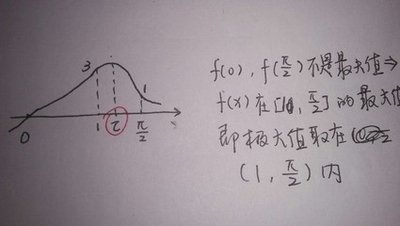 3
1
0
1
τ
π/2
f(0), f(π/2)不是最大值⇒
f(x)在[1, π/2]的最大值
即极大值取在
(1, π/2)内